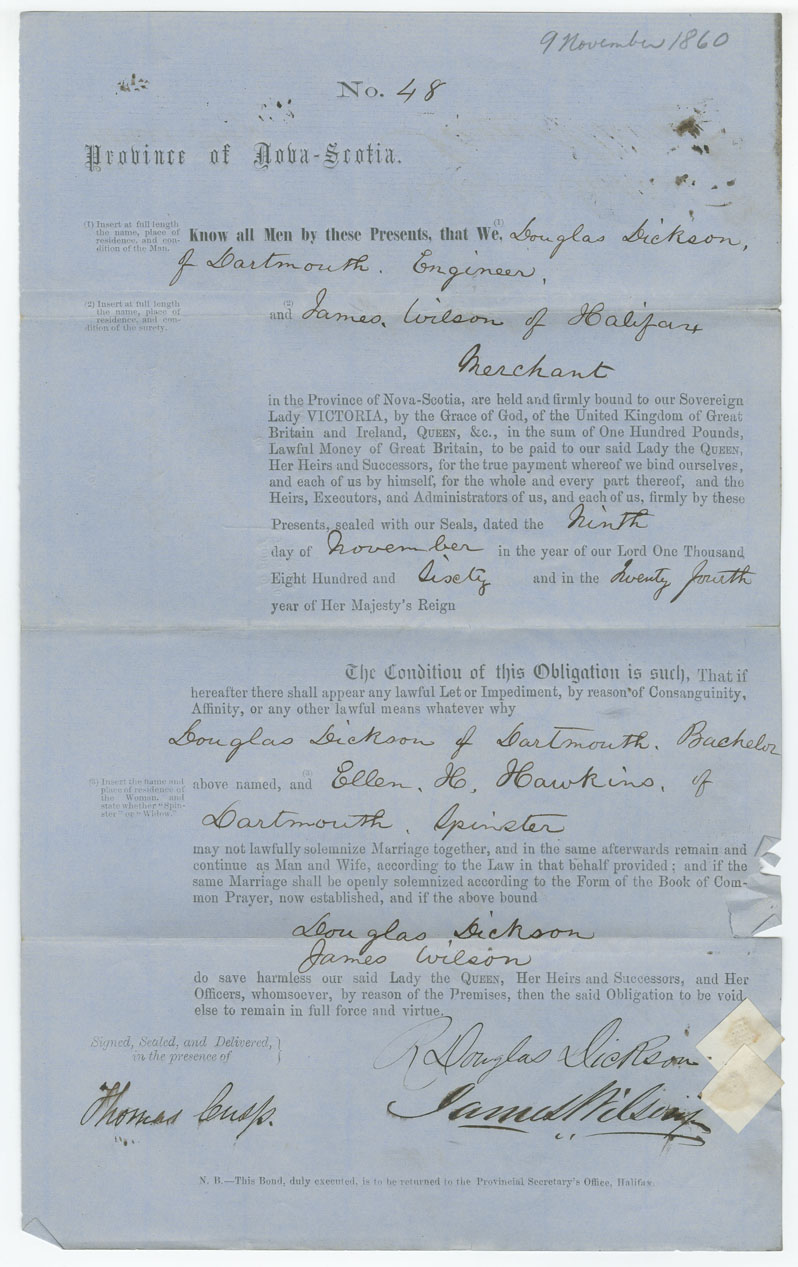 9 November 1860
No. 48
Province of Nova-Scotia.
(1) Insert at full length
the name, place of
residence, and con-
dition of the Man.
Know all Men by these Presents, that We, (1) Douglas Dickson,
of Dartmouth. Engineer,
(2) Insert at full length
the name, place of
residence, and con-
dition of the surety.
(2)
and James Wilson of Halifax
Merchant
in the Province of Nova-Scotia, are held and firmly bound to our Sovereign
Lady VICTORIA, by the Grace of God, of the United Kingdom of Great
Britain and Ireland, QUEEN, &c., in the sum of One Hundred Pounds,
Lawful Money of Great Britain, to be paid to our said Lady the QUEEN,
Her Heirs and Successors, for the true payment whereof we bind ourselves,
and each of us by himself, for the whole and every part thereof, and the
Heirs, Executors, and Administrators of us, and each of us, firmly by these
Presents, sealed with our Seals, dated the Ninth
day of November in the year of our Lord One Thousand
Eight Hundred and Sixty and in the Twenty fourth
year of Her Majesty's Reign
The Condition of this Obligation is such, That if
hereafter there shall appear any lawful Let or Impediment, by reason of Consanguinity,
Affinity, or any other lawful means whatever why
Douglas Dickson of Dartmouth. Bachelor
(3) Insert the name and
place of residence of
the Woman, and
state whether "Spin-
ster" or "Widow."
above named, and (3) Ellen. H. Hawkins. of
Dartmouth. Spinster
may not lawfully solemnize Marriage together, and in the same afterwards remain and
continue as Man and Wife, according to the Law in that behalf provided; and if the
same Marriage shall be openly solemnized according to the Form of the Book of Com-
mon Prayer, now established, and if the above bound
Douglas Dickson
James Wilson
do save harmless our said Lady the QUEEN, Her Heirs and Successors, and Her
Officers, whomsoever, by reason of the Premises, then the said Obligation to be void,
else to remain in full force and virtue.
Signed, Sealed, and Delivered,
in the presence of
R Douglas Dickson
Thomas Cusp.
James Wilson
N. B.—This Bond, duly executed, is to be returned to the Provincial Secretary's Office, Halifax.